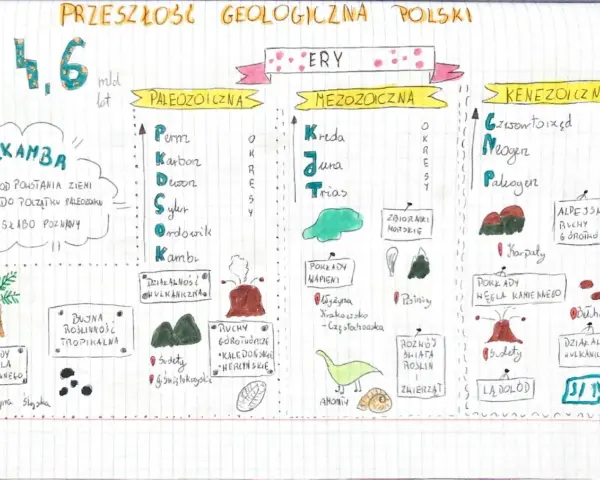 PRZESZŁOŚĆ GEOLOGICZNA POLSKI
4,6
mld
lat
ERY
KAMBR
OD POWSTANIA ZIEMI
DO POCZĄTKU PALEOZOIKU
SŁABO POZNANY
PALEOZOICZNA
Perm
Karbon
Dewon
Sylur
Ordowik
Kambr
OKRESY
DZIAŁALNOŚĆ
WULKANICZNA
BUJNA
ROŚLINNOŚĆ
TROPIKALNA
Sudety
Świętokrzyskie
RUCHY
GÓROTWÓRCZE
• KALEDOŃSKIE
• HERCYŃSKIE
MEZOZOICZNA
Kreda
Jura
Trias
OKRESY
ZBIORNIKI
MORSKIE
POKŁADY
WAPIENI
Wyżyna
Krakowsko
- Częstochowska
Pieniny
ROZWÓJ
ŚWIATA
ROŚLIN
I
ZWIERZĄT
AMONIT
KENEZOICZN
Czwartorzęd
Neogen
Paleogen
ALPEJSK
RUCHY
GÓROTWÓ
Karpaty
POKŁADY
WĘGLA KAMIENNEGO
Sudety
DZIAŁAL
WULKANI
LĄDOLÓD